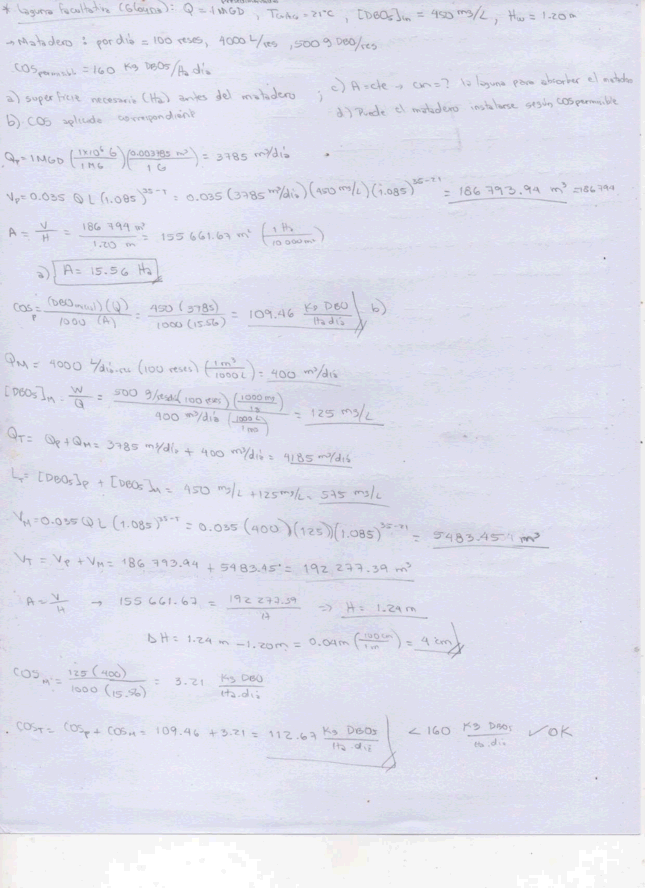 * Laguna Facultativa (Gloyna): Q = 1 MGD , Tcrítico = 21°C , [DBO5]in = 450 mg/L , Hw = 1.20 m
→ Matadero : por día = 100 reses, 4000 L/res , 500 g DBO/res
COSpermisible = 160 Kg DBO5/Ha día
a) superficie necesaria (Ha) antes del matadero ; c) A = cte → cm = ? la laguna para absorber el matadero
b) COS aplicado correspondiente d) Puede el matadero instalarse según COSpermisible
Qp = 1 MGD (1x10⁶ G / 1 MG) (0.003785 m³ / 1 G) = 3785 m³/día
Vp = 0.035 Q L (1.085)^35-T = 0.035 (3785 m³/día) (450 mg/L) (1.085)^35-21 = 186 793.94 m³ = 186 794
A = V/H = 186 794 m³ / 1.20 m = 155 661.67 m² (1 Ha / 10 000 m²)
a) A = 15.56 Ha
COSp = (DBO) (Q) / 1000 (A) = 450 (3785) / 1000 (15.56) = 109.46 Kg DBO / Ha día b)
QM = 4000 L/día.res (100 reses) (1 m³ / 1000 L) = 400 m³/día
[DBO5]M = W/Q = 500 g/res día (100 reses) (1000 mg / 1 g) / 400 m³/día (1000 L / 1 m³) = 125 mg/L
QT = Qp + QM = 3785 m³/día + 400 m³/día = 4185 m³/día
LT = [DBO5]p + [DBO5]M = 450 mg/L + 125 mg/L = 575 mg/L
VM = 0.035 Q L (1.085)^35-T = 0.035 (400) (125) (1.085)^35-21 = 5483.45 m³
VT = Vp + VM = 186 793.94 + 5483.45 = 192 277.39 m³
A = V/H → 155 661.67 = 192 277.39 / H => H = 1.24 m
ΔH = 1.24 m - 1.20 m = 0.04 m (100 cm / 1 m) = 4 cm
COSM = 125 (400) / 1000 (15.56) = 3.21 Kg DBO / Ha. día
COST = COSp + COSM = 109.46 + 3.21 = 112.67 Kg DBO5 / Ha . día < 160 Kg DBO5 / Ha. día ✓ OK